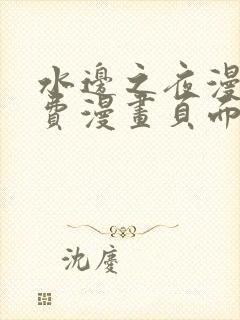 水邊之夜漫
費漫畫頁面
沈慶